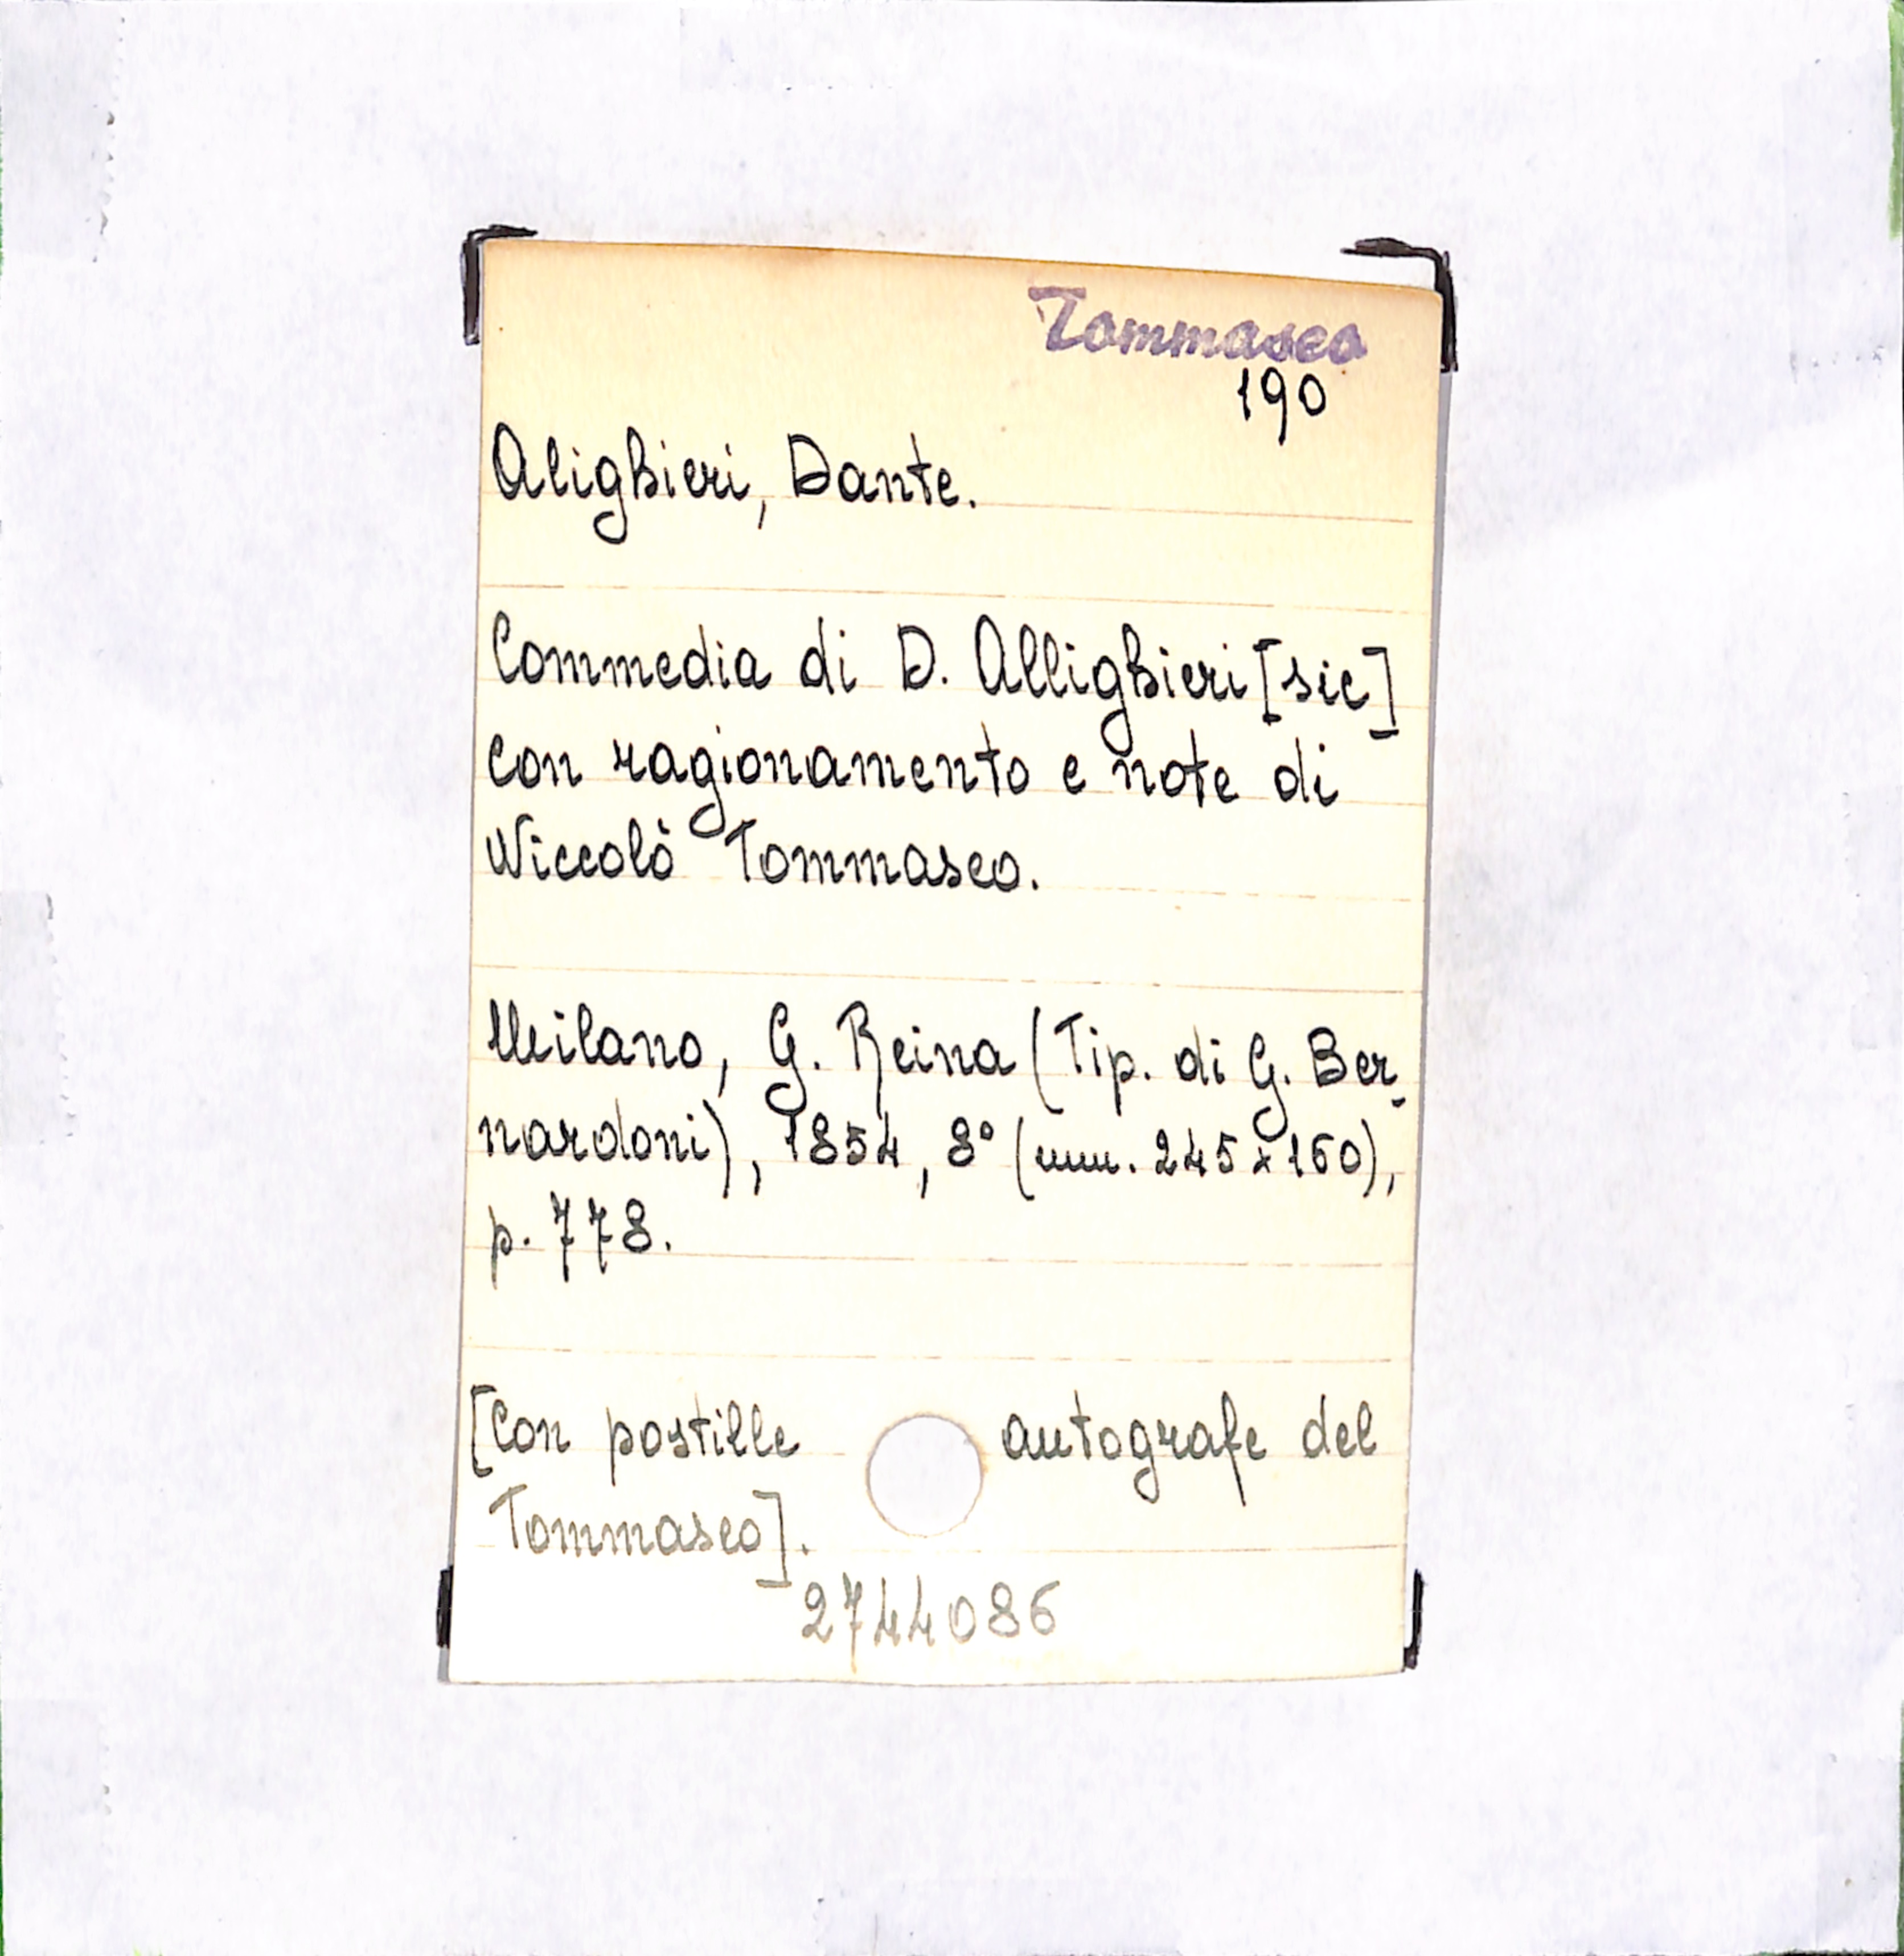 Tommaseo
190
Alighieri, Dante.
Commedia di D. Allighieri [sic]
con ragionamento e note di
Niccolò Tommaseo.
Milano, G. Reina (Tip. di G. Ber-
nardoni), 1854, 8° (mm. 245 x 160),
p. 778.
[Con postille autografe del
Tommaseo].
2744086